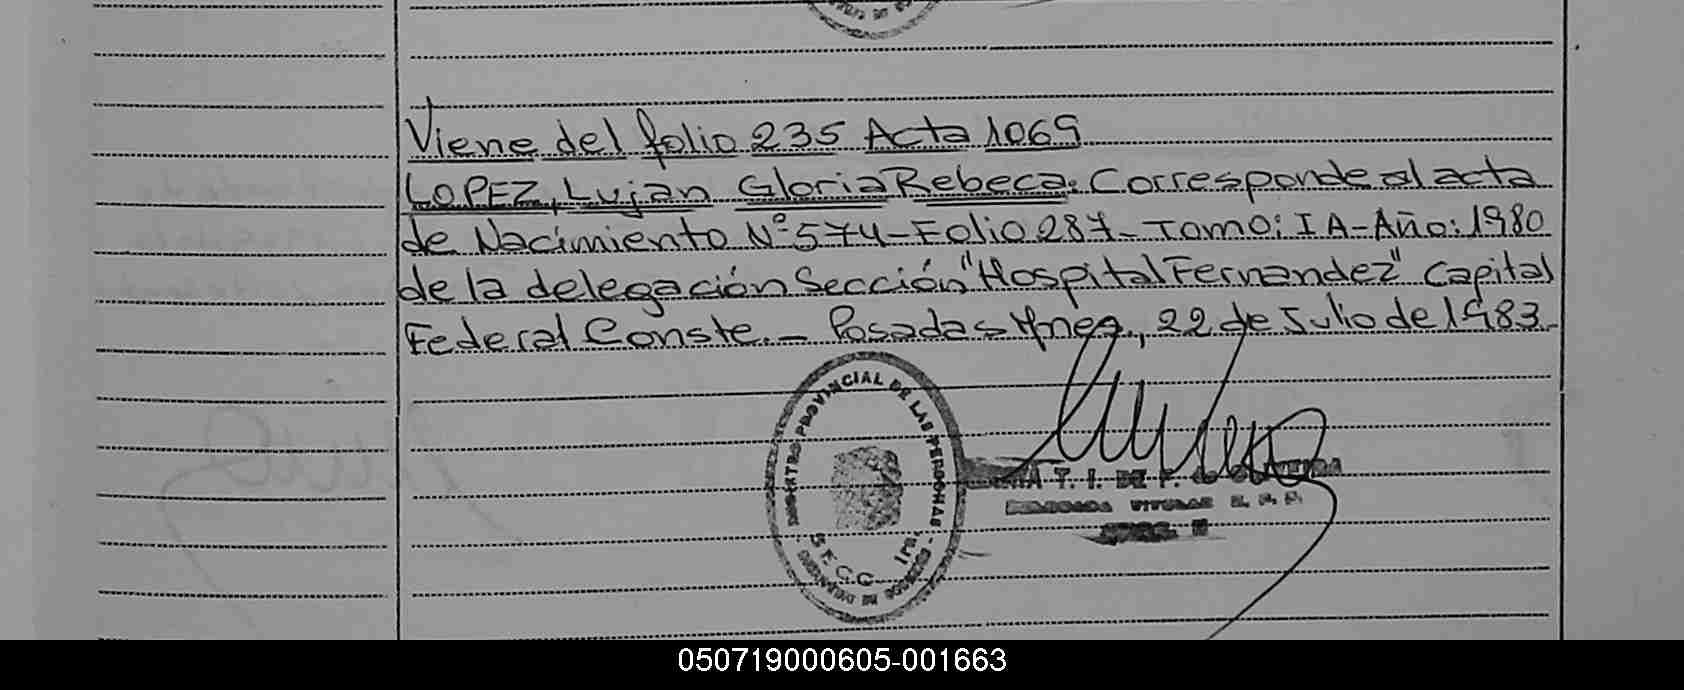 Viene del folio 235 Acta 1069
LOPEZ, Lujan Gloria Rebeca. Corresponde al acta
de Nacimiento Nº 574 - Folio 287 - Tomo: I A - Año: 1980
de la delegación Sección "Hospital Fernandez" Capital
Federal Conste. - Posadas Mnes., 22 de Julio de 1983
REGISTRO PROVINCIAL DE LAS PERSONAS
SECC 1ra.
T. I. DE F.
TITULAR R. P. P.
050719000605-001663